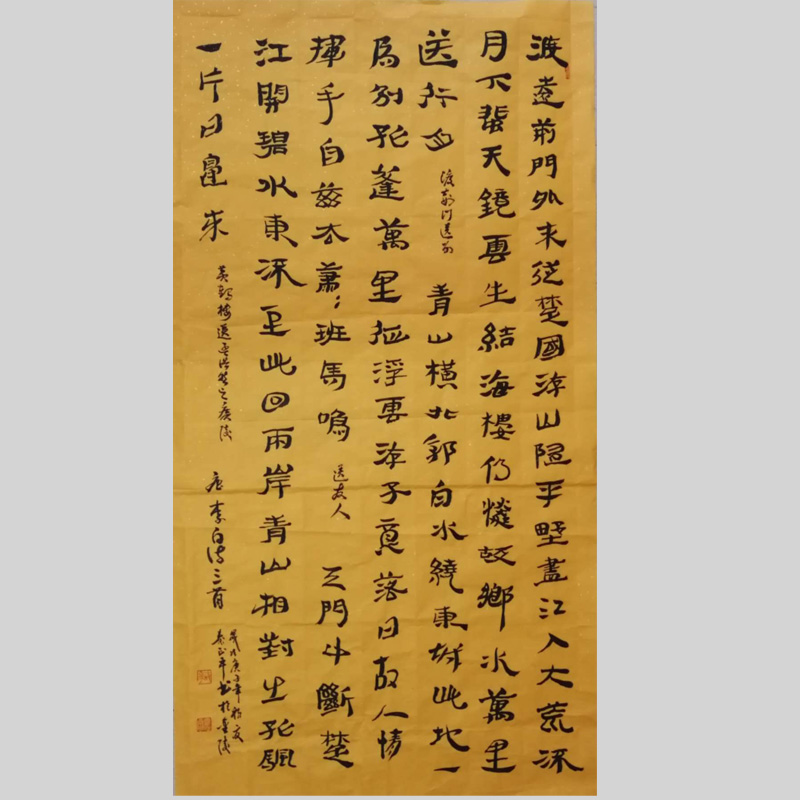 渡遠荊門外來從楚國游山隨平野盡江入大荒流
月下飛天鏡雲生結海樓仍憐故鄉水萬里
送行舟 渡荊門送別 青山橫北郭白水繞東城此地一
為別孤蓬萬里征浮雲游子意落日故人情
揮手自茲去蕭〻班馬鳴 送友人 天門中斷楚
江開碧水東流至此回兩岸青山相對出孤帆
一片日邊來 黃鶴樓送孟浩然之廣陵 唐李白詩三首
歲次庚子年初夏
書於金陵